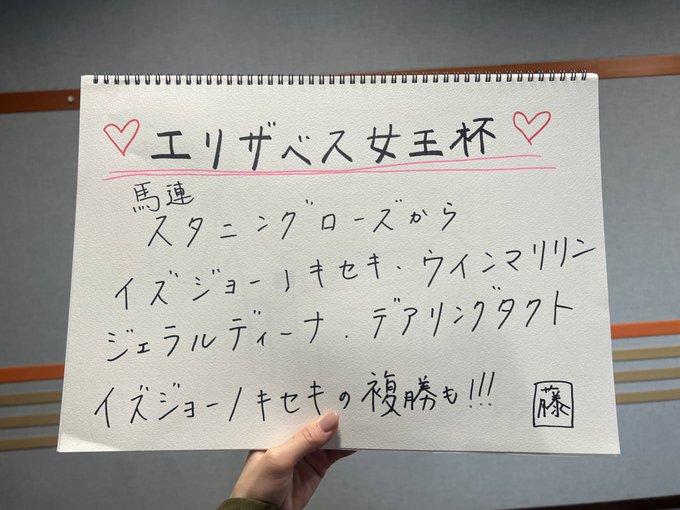 エリザベス女王杯
馬連
スタニングローズから
イズジョーノキセキ・ウインマリリン
ジェラルディーナ・デアリングタクト
イズジョーノキセキの複勝も!!!
藤